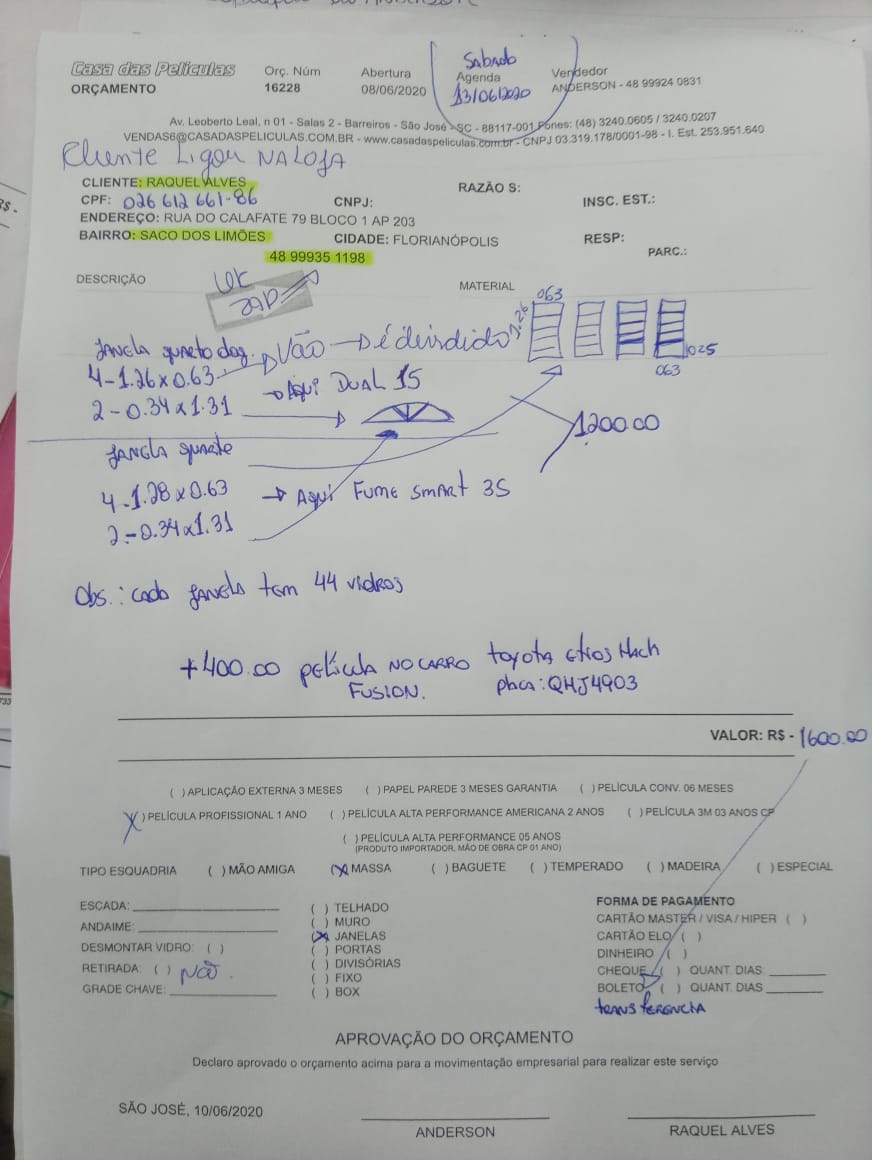 Casa das Películas
ORÇAMENTO
Orç. Núm
16228
Abertura
08/06/2020
Sabado
Agenda
13/06/2020
Vendedor
ANDERSON - 48 99924 0831
Av. Leoberto Leal, n 01 - Salas 2 - Barreiros - São José - SC - 88117-001 Fones: (48) 3240.0605 / 3240.0207
VENDAS6@CASADASPELICULAS.COM.BR - www.casadaspeliculas.com.br - CNPJ 03.319.178/0001-98 - I. Est. 253.951.640
Cliente Ligou NA LOJA
CLIENTE: RAQUEL ALVES
RAZÃO S:
CPF: 026 612 661-86
CNPJ:
INSC. EST.:
ENDEREÇO: RUA DO CALAFATE 79 BLOCO 1 AP 203
BAIRRO: SACO DOS LIMÕES
CIDADE: FLORIANÓPOLIS
RESP:
48 99935 1198
PARC.:
DESCRIÇÃO
MATERIAL
OK
ZAP
063
1.26
025
063
JANELA quarto dog. Vão É dividido
4-1.26x0.63
Aqui DUAL 15
2-0.34x1.31
1200.00
JANELA quarto
4-1.28x0.63 Aqui FUME SMART 35
2-0.34x1.31
Obs.: cada JANELA tem 44 vidros
+400.00 película NO CARRO toyota etios Hach
FUSION. placa: QHJ4903
VALOR: R$ - 1600.00
( ) APLICAÇÃO EXTERNA 3 MESES ( ) PAPEL PAREDE 3 MESES GARANTIA ( ) PELÍCULA CONV. 06 MESES
X ) PELÍCULA PROFISSIONAL 1 ANO ( ) PELÍCULA ALTA PERFORMANCE AMERICANA 2 ANOS ( ) PELÍCULA 3M 03 ANOS CP
( ) PELÍCULA ALTA PERFORMANCE 05 ANOS
(PRODUTO IMPORTADOR, MÃO DE OBRA CP 01 ANO)
TIPO ESQUADRIA ( ) MÃO AMIGA (X) MASSA ( ) BAGUETE ( ) TEMPERADO ( ) MADEIRA ( ) ESPECIAL
ESCADA:
ANDAIME:
DESMONTAR VIDRO: ( )
RETIRADA: ( ) Não.
GRADE CHAVE:
( ) TELHADO
( ) MURO
(X) JANELAS
( ) PORTAS
( ) DIVISÓRIAS
( ) FIXO
( ) BOX
FORMA DE PAGAMENTO
CARTÃO MASTER / VISA / HIPER ( )
CARTÃO ELO ( )
DINHEIRO ( )
CHEQUE ( ) QUANT. DIAS:
BOLETO ( ) QUANT. DIAS
transferencia
APROVAÇÃO DO ORÇAMENTO
Declaro aprovado o orçamento acima para a movimentação empresarial para realizar este serviço
SÃO JOSÉ, 10/06/2020
ANDERSON
RAQUEL ALVES